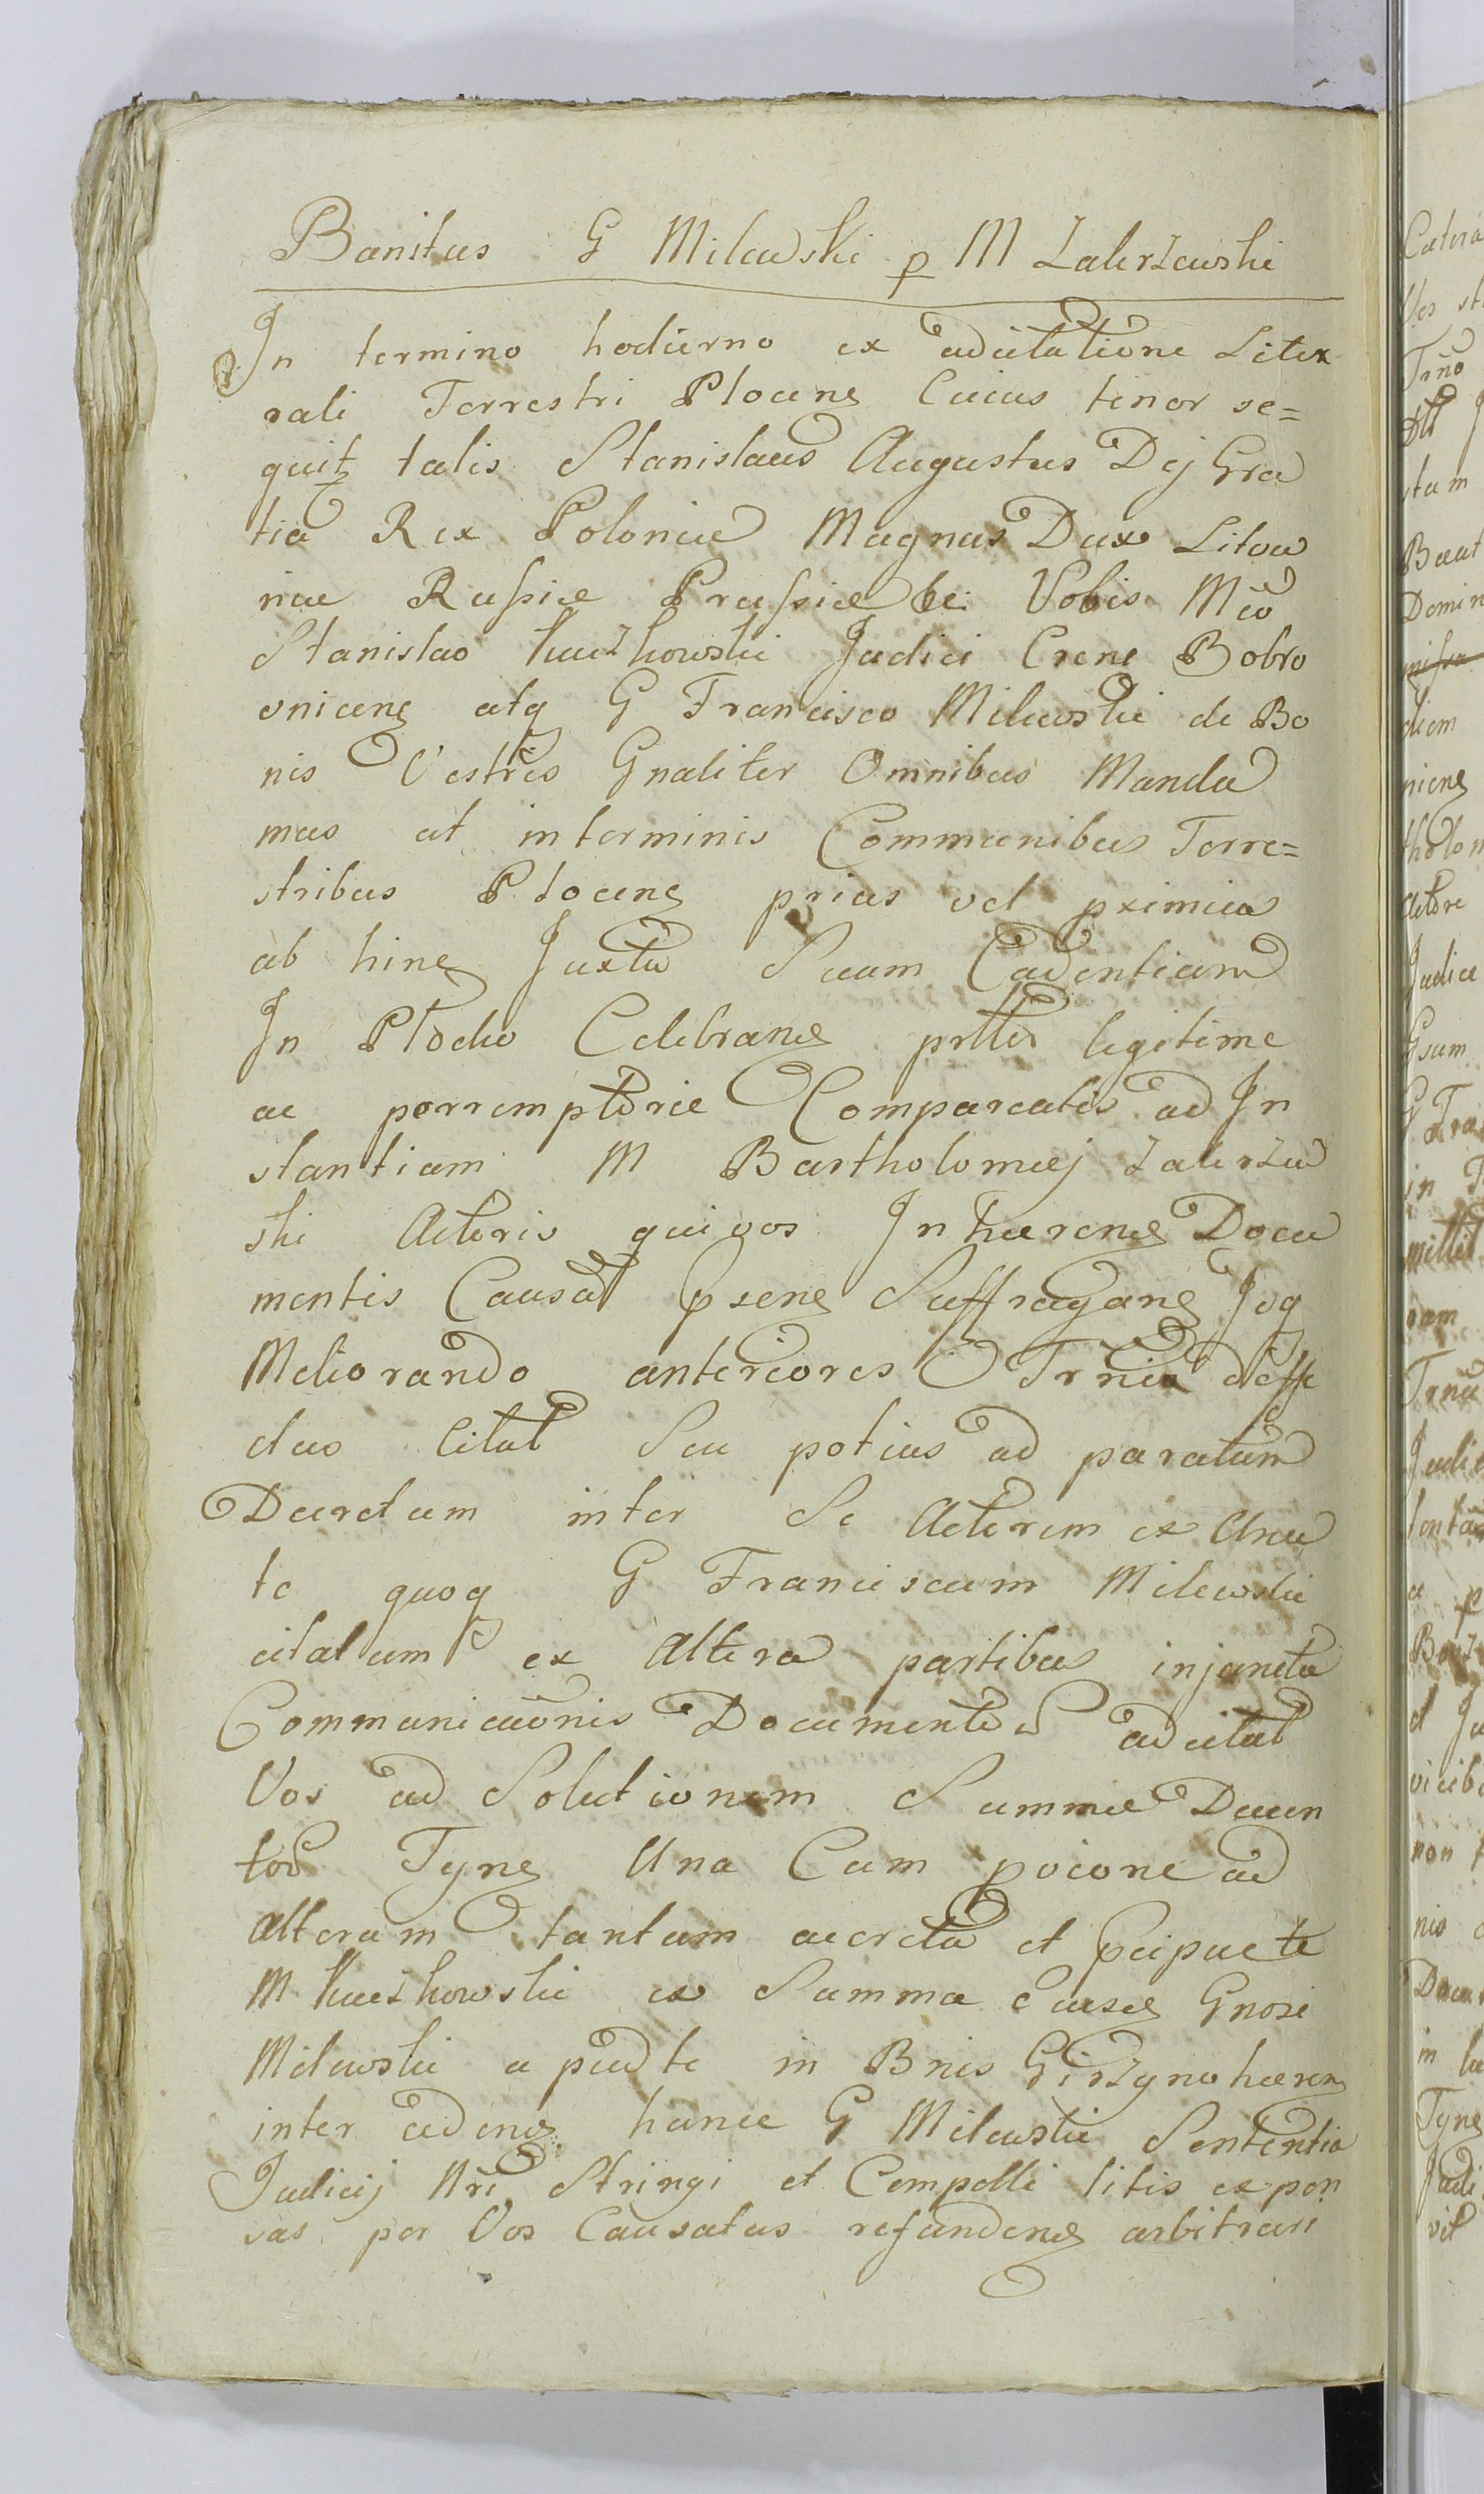 Banitus G Milewski p M Zalerzewski
In termino hodierno ex adcitatione Lite
rali Terrestri Plocens Cuius tenor se=
quit talis Stanislaus Augustus Dej Gra
tia Rex Poloniæ Magnus Dux Litva
niae Russiæ Prussiæ &c: Vobis Mco
Stanislao Judici Crens Bobro
vnicens atq G Francisco Milewski de Bo
nis Vestris Gnaliter Omnibus Manda
mus ut in terminis Communibus Terre=
stribus Plocens prius vel pximius
ab hinc Juxta Suam Cadentiam
In Plocko Celebrans pstes legitime
ac perremptorie Compareatis ad In
stantiam M Bartholomæj Zalerzew
ski Actoris qui vos Inhærens Docu
mentis Causa psens Suffragans Joq
Meliorando anteriores Trnia deffe
ctuo Citat Seu potius ad paratum
Decretum inter Se Actorem ex Una
te quoq G Franciscum Milewski
citatum ex Altera partibus injuncta
Communicaonis Documentor adcitat
Vos ad Solutionem Summæ Ducen
tor Tyns Una Cum poione ad
alterum tantum accreta et pcipue te
M ex Summa Gnosi
Milewski apud te in Bnis hæren
inter cedens hance G Milewski Sententia
Judicij Nri Stringi et Compelli litis expen
sas per Vos Causatas refundens arbitrari
Catera
Vos st
Trno
Dtt J
stum
Beat
Domin
diem
niens
tholom
Actore
Judica
Gsum
G Fra
in T
mittit
ram
Trnu
Judic
tenta
a p
et Ju
vicib
non
nis
Docu
in
Tyns
Judi
vit